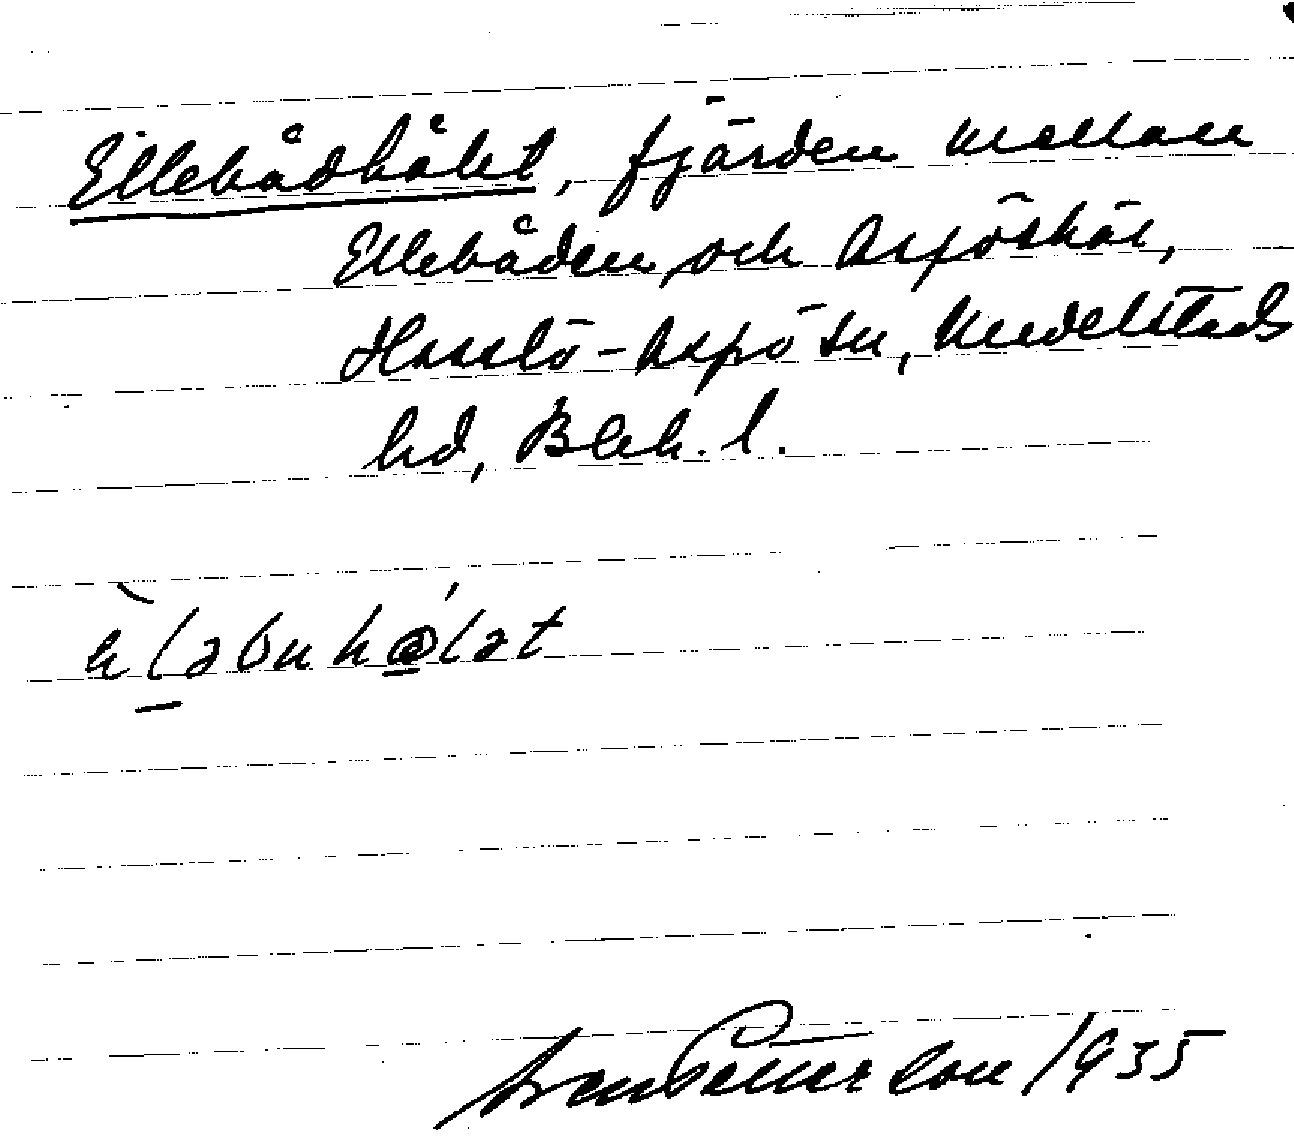 Ellebådhålet, fjärden mellan
Ellebåden och Aspöskär,
Hasslö-Aspö sn, Medelstads
hd, Blek. l.
Sven Petterson 1935